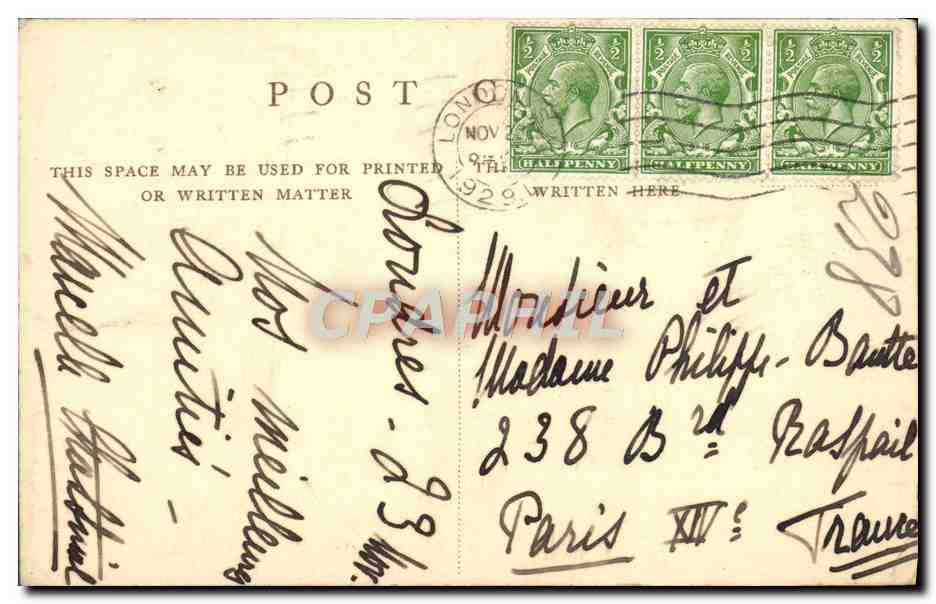 POST C
THIS SPACE MAY BE USED FOR PRINTED
OR WRITTEN MATTER
TH
WRITTEN HERE
LONDO
NOV 2
1929
1/2 1/2
POSTAGE
HALFPENNY
1/2 1/2
POSTAGE
HALFPENNY
1/2 1/2
POSTAGE
HALFPENNY
238
Londres - 23 Nov.
Nos meilleures
Amitiés -
Marcelle
Monsieur et
Madame Philippe-
238 Bd Raspail
Paris XIVe
France
CPAPHIL